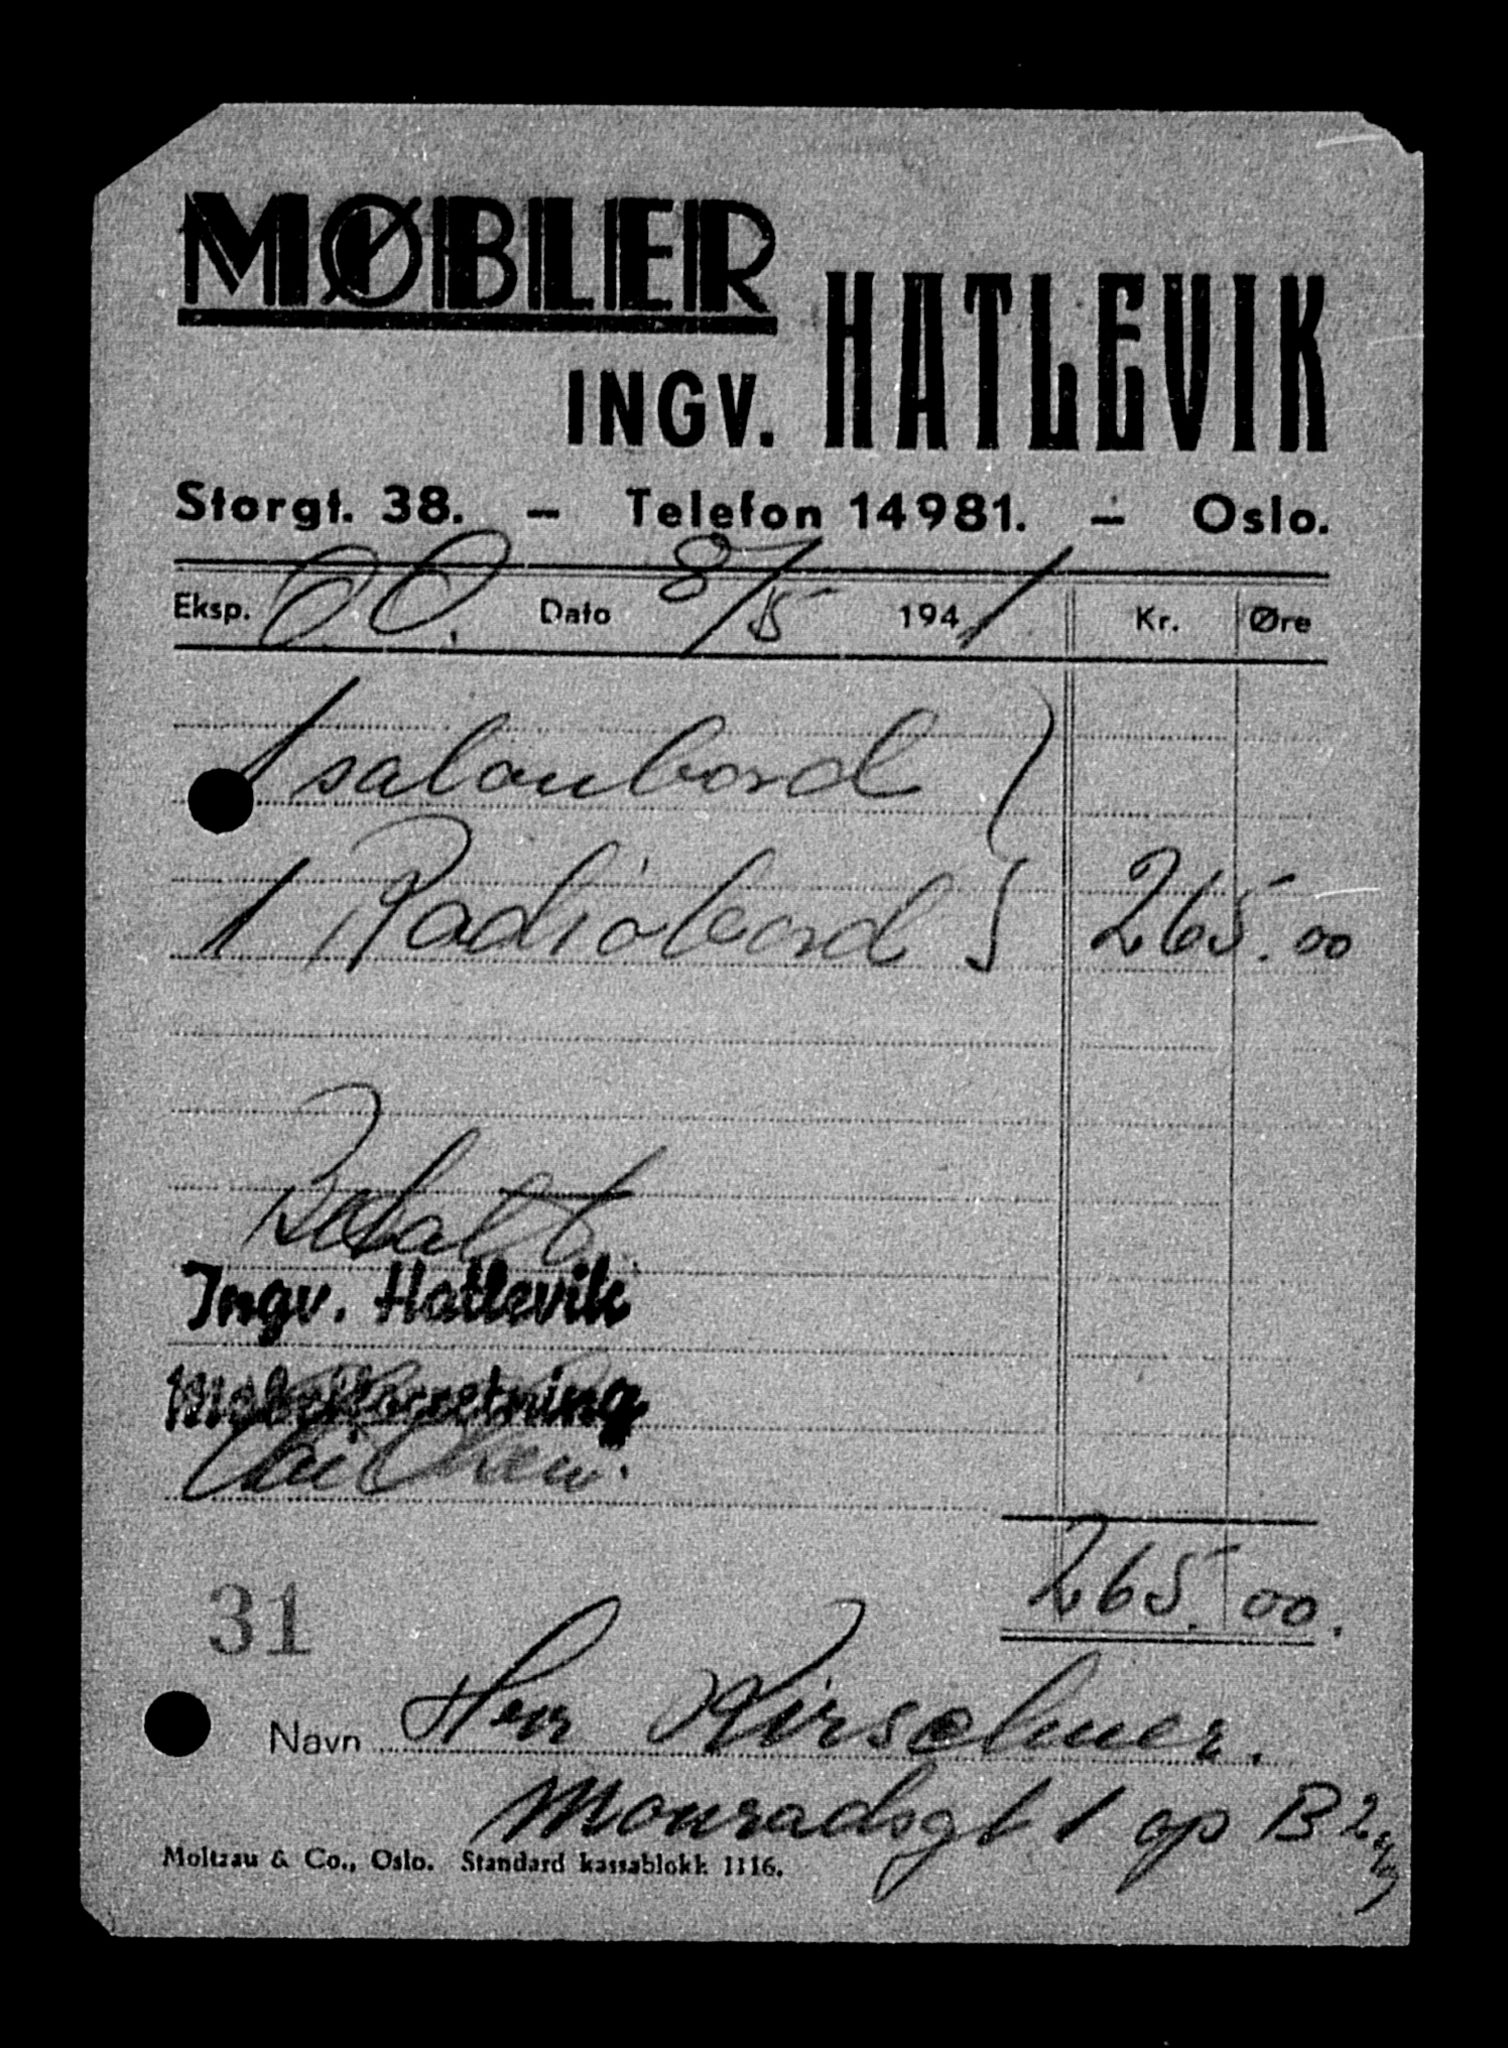 MØBLER
INGV. HATLEVIK
Storgt. 38. – Telefon 14981. – Oslo.
Eksp. O.O. Dato 8/5 1941 Kr. Øre
1 salonbord
1 Radiobord 265.00
Betalt
Ingv. Hatlevik
Møbelforretning
265.00.
31
Navn Herr Kirschner.
Monradsgt 1 op B 2
Moltzau & Co., Oslo. Standard kassablokk 1116.